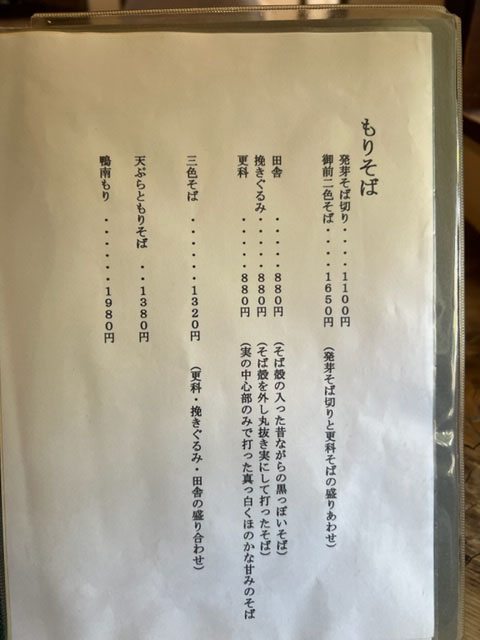 もりそば
発芽そば切り・・・・１１００円
御前二色そば・・・・１６５０円（発芽そば切りと更科そばの盛りあわせ）
田舎・・・・・８８０円（そば殻の入った昔ながらの黒っぽいそば）
挽きぐるみ・・・・８８０円（そば殻を外し丸抜き実にして打ったそば）
更科・・・・・８８０円（実の中心部のみで打った真っ白くほのかな甘みのそば
三色そば・・・・・・１３２０円（更科・挽きぐるみ・田舎の盛り合わせ）
天ぷらともりそば・・１３８０円
鴨南もり・・・・・・・１９８０円